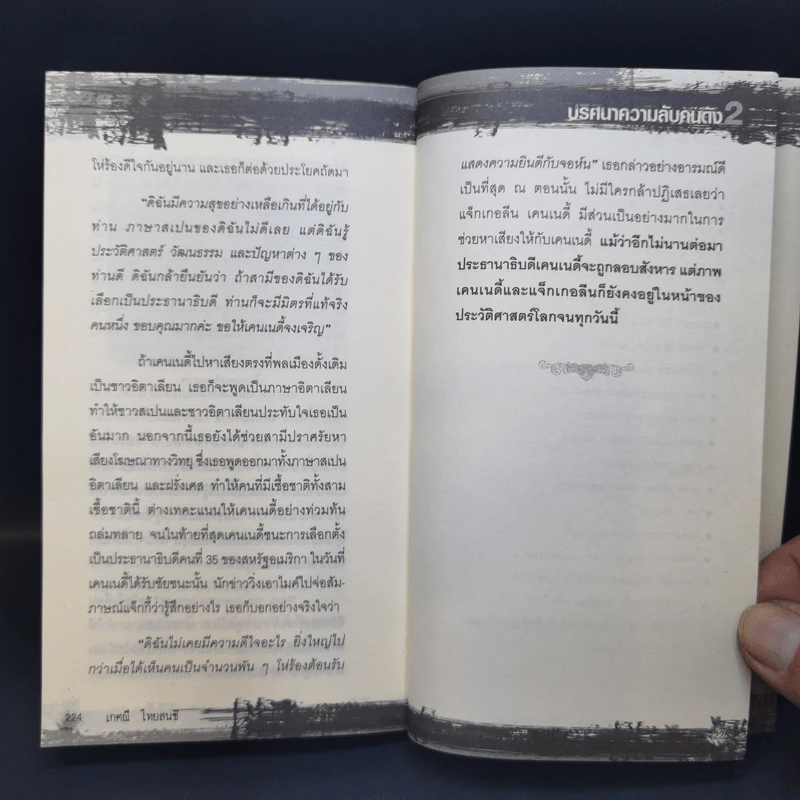 โห่ร้องดีใจกันอยู่นาน และเธอก็ต่อด้วยประโยคถัดมา
"ดิฉันมีความสุขอย่างเหลือเกินที่ได้อยู่กับ
ท่าน ภาษาสเปนของดิฉันไม่ดีเลย แต่ดิฉันรู้
ประวัติศาสตร์ วัฒนธรรม และปัญหาต่าง ๆ ของ
ท่านดี ดิฉันกล้ายืนยันว่า ถ้าสามีของดิฉันได้รับ
เลือกเป็นประธานาธิบดี ท่านก็จะมีมิตรที่แท้จริง
คนหนึ่ง ขอบคุณมากค่ะ ขอให้เคนเนดี้จงเจริญ"
ถ้าเคนเนดี้ไปหาเสียงตรงที่พลเมืองดั้งเดิม
เป็นชาวอิตาเลียน เธอก็จะพูดเป็นภาษาอิตาเลียน
ทำให้ชาวสเปนและชาวอิตาเลียนประทับใจเธอเป็น
อันมาก นอกจากนี้เธอยังได้ช่วยสามีปราศรัยหา
เสียงโฆษณาทางวิทยุ ซึ่งเธอพูดออกมาทั้งภาษาสเปน
อิตาเลียน และฝรั่งเศส ทำให้คนที่มีเชื้อชาติทั้งสาม
เชื้อชาตินี้ ต่างเทคะแนนให้เคนเนดี้อย่างท่วมท้น
ถล่มทลาย จนในท้ายที่สุดเคนเนดี้ชนะการเลือกตั้ง
เป็นประธานาธิบดีคนที่ 35 ของสหรัฐอเมริกา ในวันที่
เคนเนดี้ได้รับชัยชนะนั้น นักข่าววิ่งเอาไมค์ไปจ่อสัม-
ภาษณ์แจ็กกี้ว่ารู้สึกอย่างไร เธอก็บอกอย่างจริงใจว่า
"ดิฉันไม่เคยมีความดีใจอะไร ยิ่งใหญ่ไป
กว่าเมื่อได้เห็นคนเป็นจำนวนพัน ๆ โห่ร้องต้อนรับ
224 เกศณี ไทยสนธิ
ปริศนาความลับคนดัง 2
แสดงความยินดีกับจอห์น" เธอกล่าวอย่างอารมณ์ดี
เป็นที่สุด ณ ตอนนั้น ไม่มีใครกล้าปฏิเสธเลยว่า
แจ็กเกอลีน เคนเนดี้ มีส่วนเป็นอย่างมากในการ
ช่วยหาเสียงให้กับเคนเนดี้ แม้ว่าอีกไม่นานต่อมา
ประธานาธิบดีเคนเนดี้จะถูกลอบสังหาร แต่ภาพ
เคนเนดี้และแจ็กเกอลีนก็ยังคงอยู่ในหน้าของ
ประวัติศาสตร์โลกจนทุกวันนี้